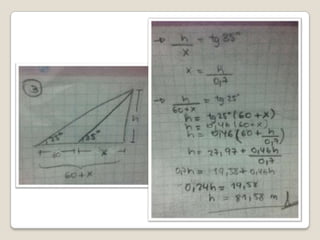 3
h
25°
35°
60
x
60+x
→ h/x = tg 35°
x = h/0,7
→ h/60+x = tg 25°
h = tg 25° (60+x)
h = 0,46 (60+x)
h = 0,46 (60 + h/0,7)
h = 27,97 + 0,46h/0,7
0,7h = 19,58 + 0,46h
0,24h = 19,58
h = 81,58 m